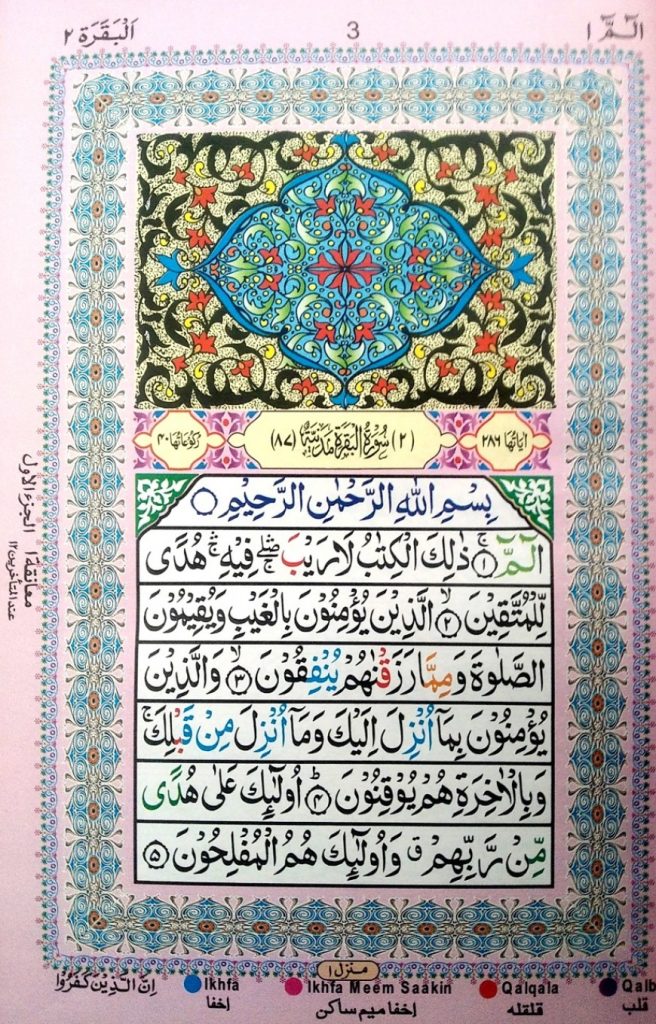 الٓمّٓ ١ 3 اَلْبَقَرَة ٢
اٰيَاتُهَا ٢٨٦ (٢) سُوْرَةُ الْبَقَرَةِ مَدَنِيَّةٌ (٨٧) رُكُوْعَاتُهَا ٤٠
بِسْمِ اللّٰهِ الرَّحْمٰنِ الرَّحِيْمِ
الٓمّٓ ۚ ١ ذٰلِكَ الْكِتٰبُ لَا رَيْبَ ۛۖ فِيْهِ ۛۚ هُدًى
لِّلْمُتَّقِيْنَ ۙ ٢ الَّذِيْنَ يُؤْمِنُوْنَ بِالْغَيْبِ وَيُقِيْمُوْنَ
الصَّلٰوةَ وَمِمَّا رَزَقْنٰهُمْ يُنْفِقُوْنَ ۙ ٣ وَالَّذِيْنَ
يُؤْمِنُوْنَ بِمَاۤ اُنْزِلَ اِلَيْكَ وَمَاۤ اُنْزِلَ مِنْ قَبْلِكَ ۚ
وَبِالْاٰخِرَةِ هُمْ يُوْقِنُوْنَ ؕ ٤ اُولٰٓئِكَ عَلٰى هُدًى
مِّنْ رَّبِّهِمْ ۗ وَاُولٰٓئِكَ هُمُ الْمُفْلِحُوْنَ ٥
معانقة ١ الجزء الاول
عند المتأخرين ١٢
منزل ١
اِنَّ الَّذِيْنَ كَفَرُوْا
Ikhfa Ikhfa Meem Saakin Qalqala Qalb
إخفا إخفا ميم ساكن قلقله قلب